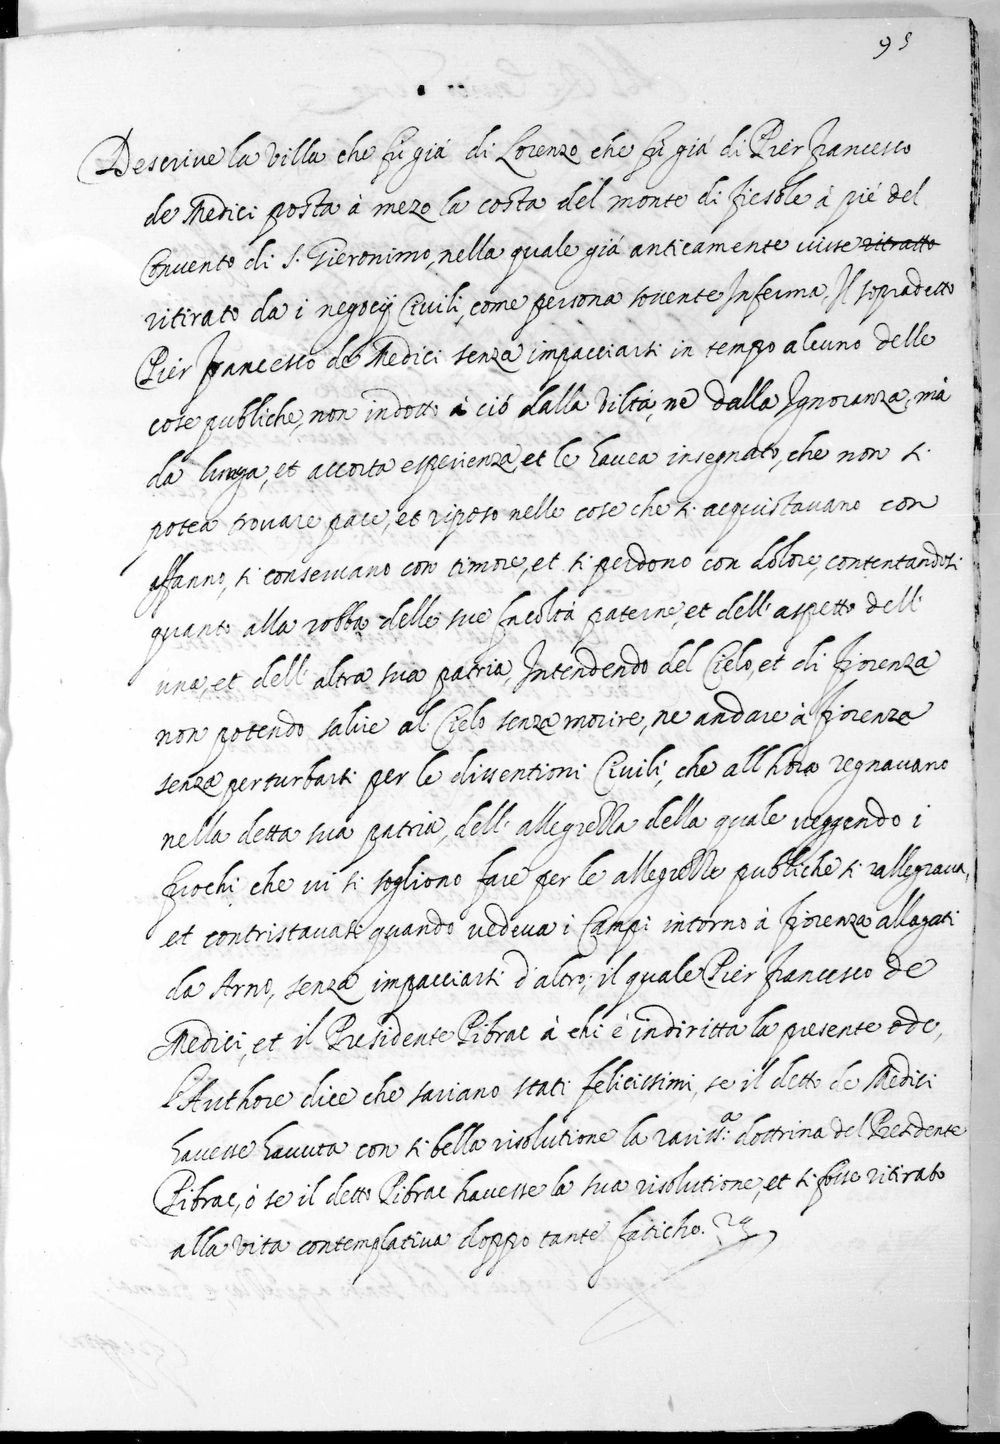 95
Descrive la villa che fù già di Lorenzo che fù già di Pier francesco
de Medici posta à mezo la costa del monte di fiesole à piè del
Convento di S. Gieronimo, nella quale già anticamente visse ritratto
ritirato da i negocij Civili, come persona sovente Inferma, Il sopradetto
Pier francesco de Medici senza impacciarsi in tempo alcuno delle
cose publiche, non indotto à ciò dalla viltà, nè dalla Ignoranza, mà
da lunga, et accorta esperienza et le havea insegnato, che non si
potea trovare pace, et riposo nelle cose che si acquistavano con
affanno, si conservano con timore, et si perdono con dolore, contentandosi
quanto alla robba delle sue facoltà paterne, et dell' aspetto dell'
una, et dell' altra sua patria, Intendendo del Cielo, et di fiorenza
non potendo salire al Cielo senza morire, ne andare à fiorenza
senza perturbarsi per le dissentioni Civili, che all'hora regnavano
nella detta sua patria, dell' allegrezza della quale veggendo i
fuochi che vi si sogliono fare per le allegrezze publiche si rallegrava,
et contristavasi quando vedeva i Campi intorno à fiorenza allagati
da Arno, senza impacciarsi d'altro; il quale Pier francesco de
Medici, et il Presidente Pibrac à chi è indiritta la presente ode,
l'Authore dice che sariano stati felicissimi, se il detto de Medici
havesse havuta con si bella risolutione la rariss:a dottrina del Presidente
Pibrac, ò se il detto Pibrac havesse la sua risolutione, et si fosse ritirato
alla vita contemplativa doppo tante fatiche.